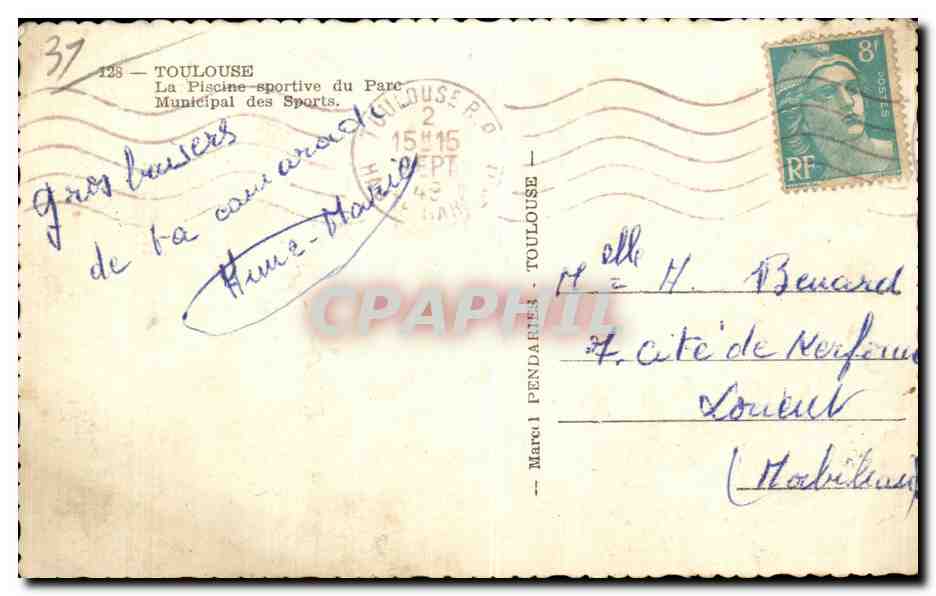 37
128 — TOULOUSE
La Piscine sportive du Parc
Municipal des Sports.
TOULOUSE R.P.
2
15H15
SEPT
GARE
8F
POSTES
RF
Gros baisers
de ta camarade
Anne-Marie
— Marcel PENDARIES - TOULOUSE —
Melle H. Benard
7. cité de
Lorient
(Morbihan)
CPAPHIL